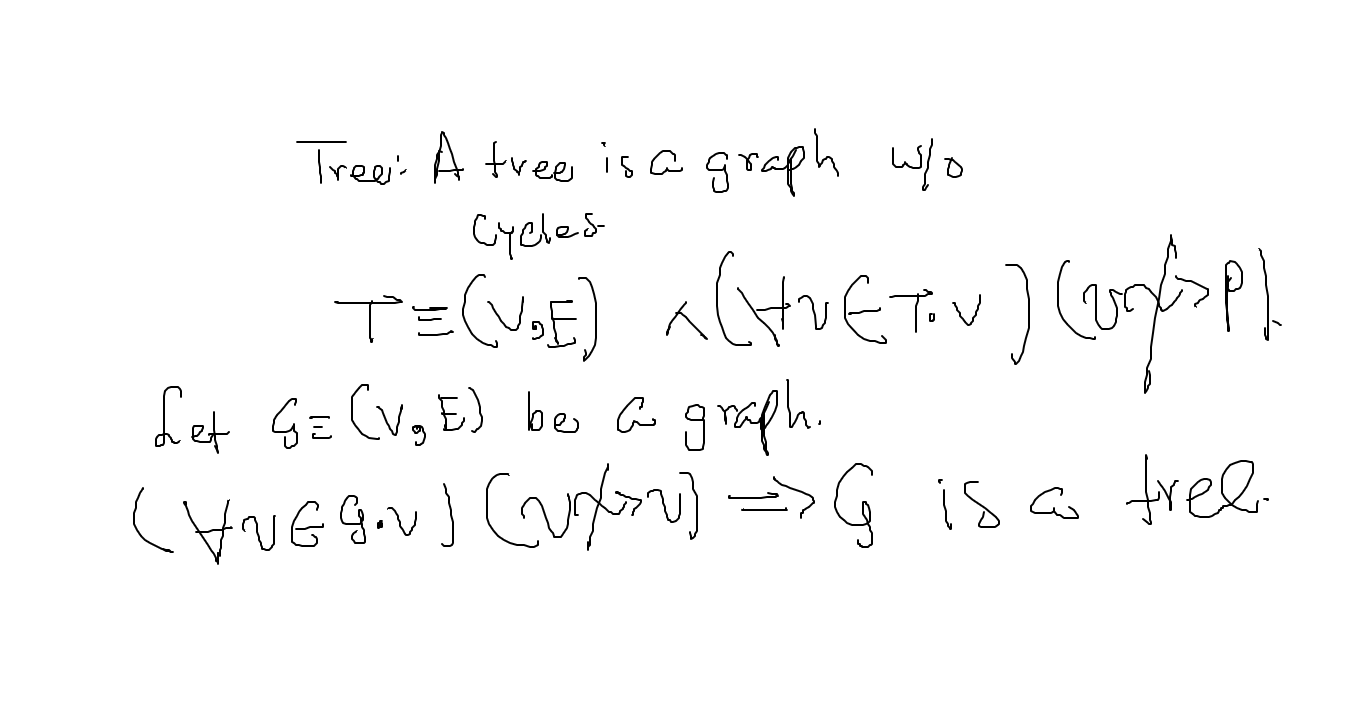 Tree: A tree is a graph w/o
cycles
T ≡ (V, E) ∧ (∀v ∈ T.V) (v ↝̸ P).
Let G ≡ (V, E) be a graph.
(∀v ∈ G.V) (v ↝̸ v) ⇒ G is a tree.